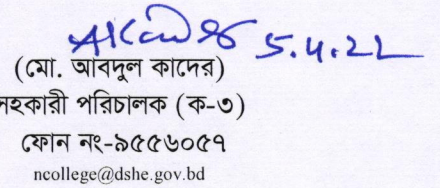 5.4.22
(মো. আবদুল কাদের)
সহকারী পরিচালক (ক-৩)
ফোন নং-৯৫৫৬০৫৭
ncollege@dshe.gov.bd